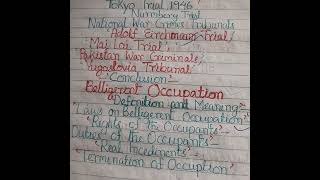 Tokyo Trial 1946
Nuremberg Trial
National War Crimes Tribunals
Adolf Eirchmann Trial,
Mai Lai Trial,
Pakistan War Criminals
Yugoslavia Tribunal
"Conclusion"
Belligerent Occupation
"Defenition and Meaning:-
"Laws on Belligerent Occupation"
"Rights of the Occupants"
Duties of the Occupants"-
"Real Incedents"
"Termination of Occuption"